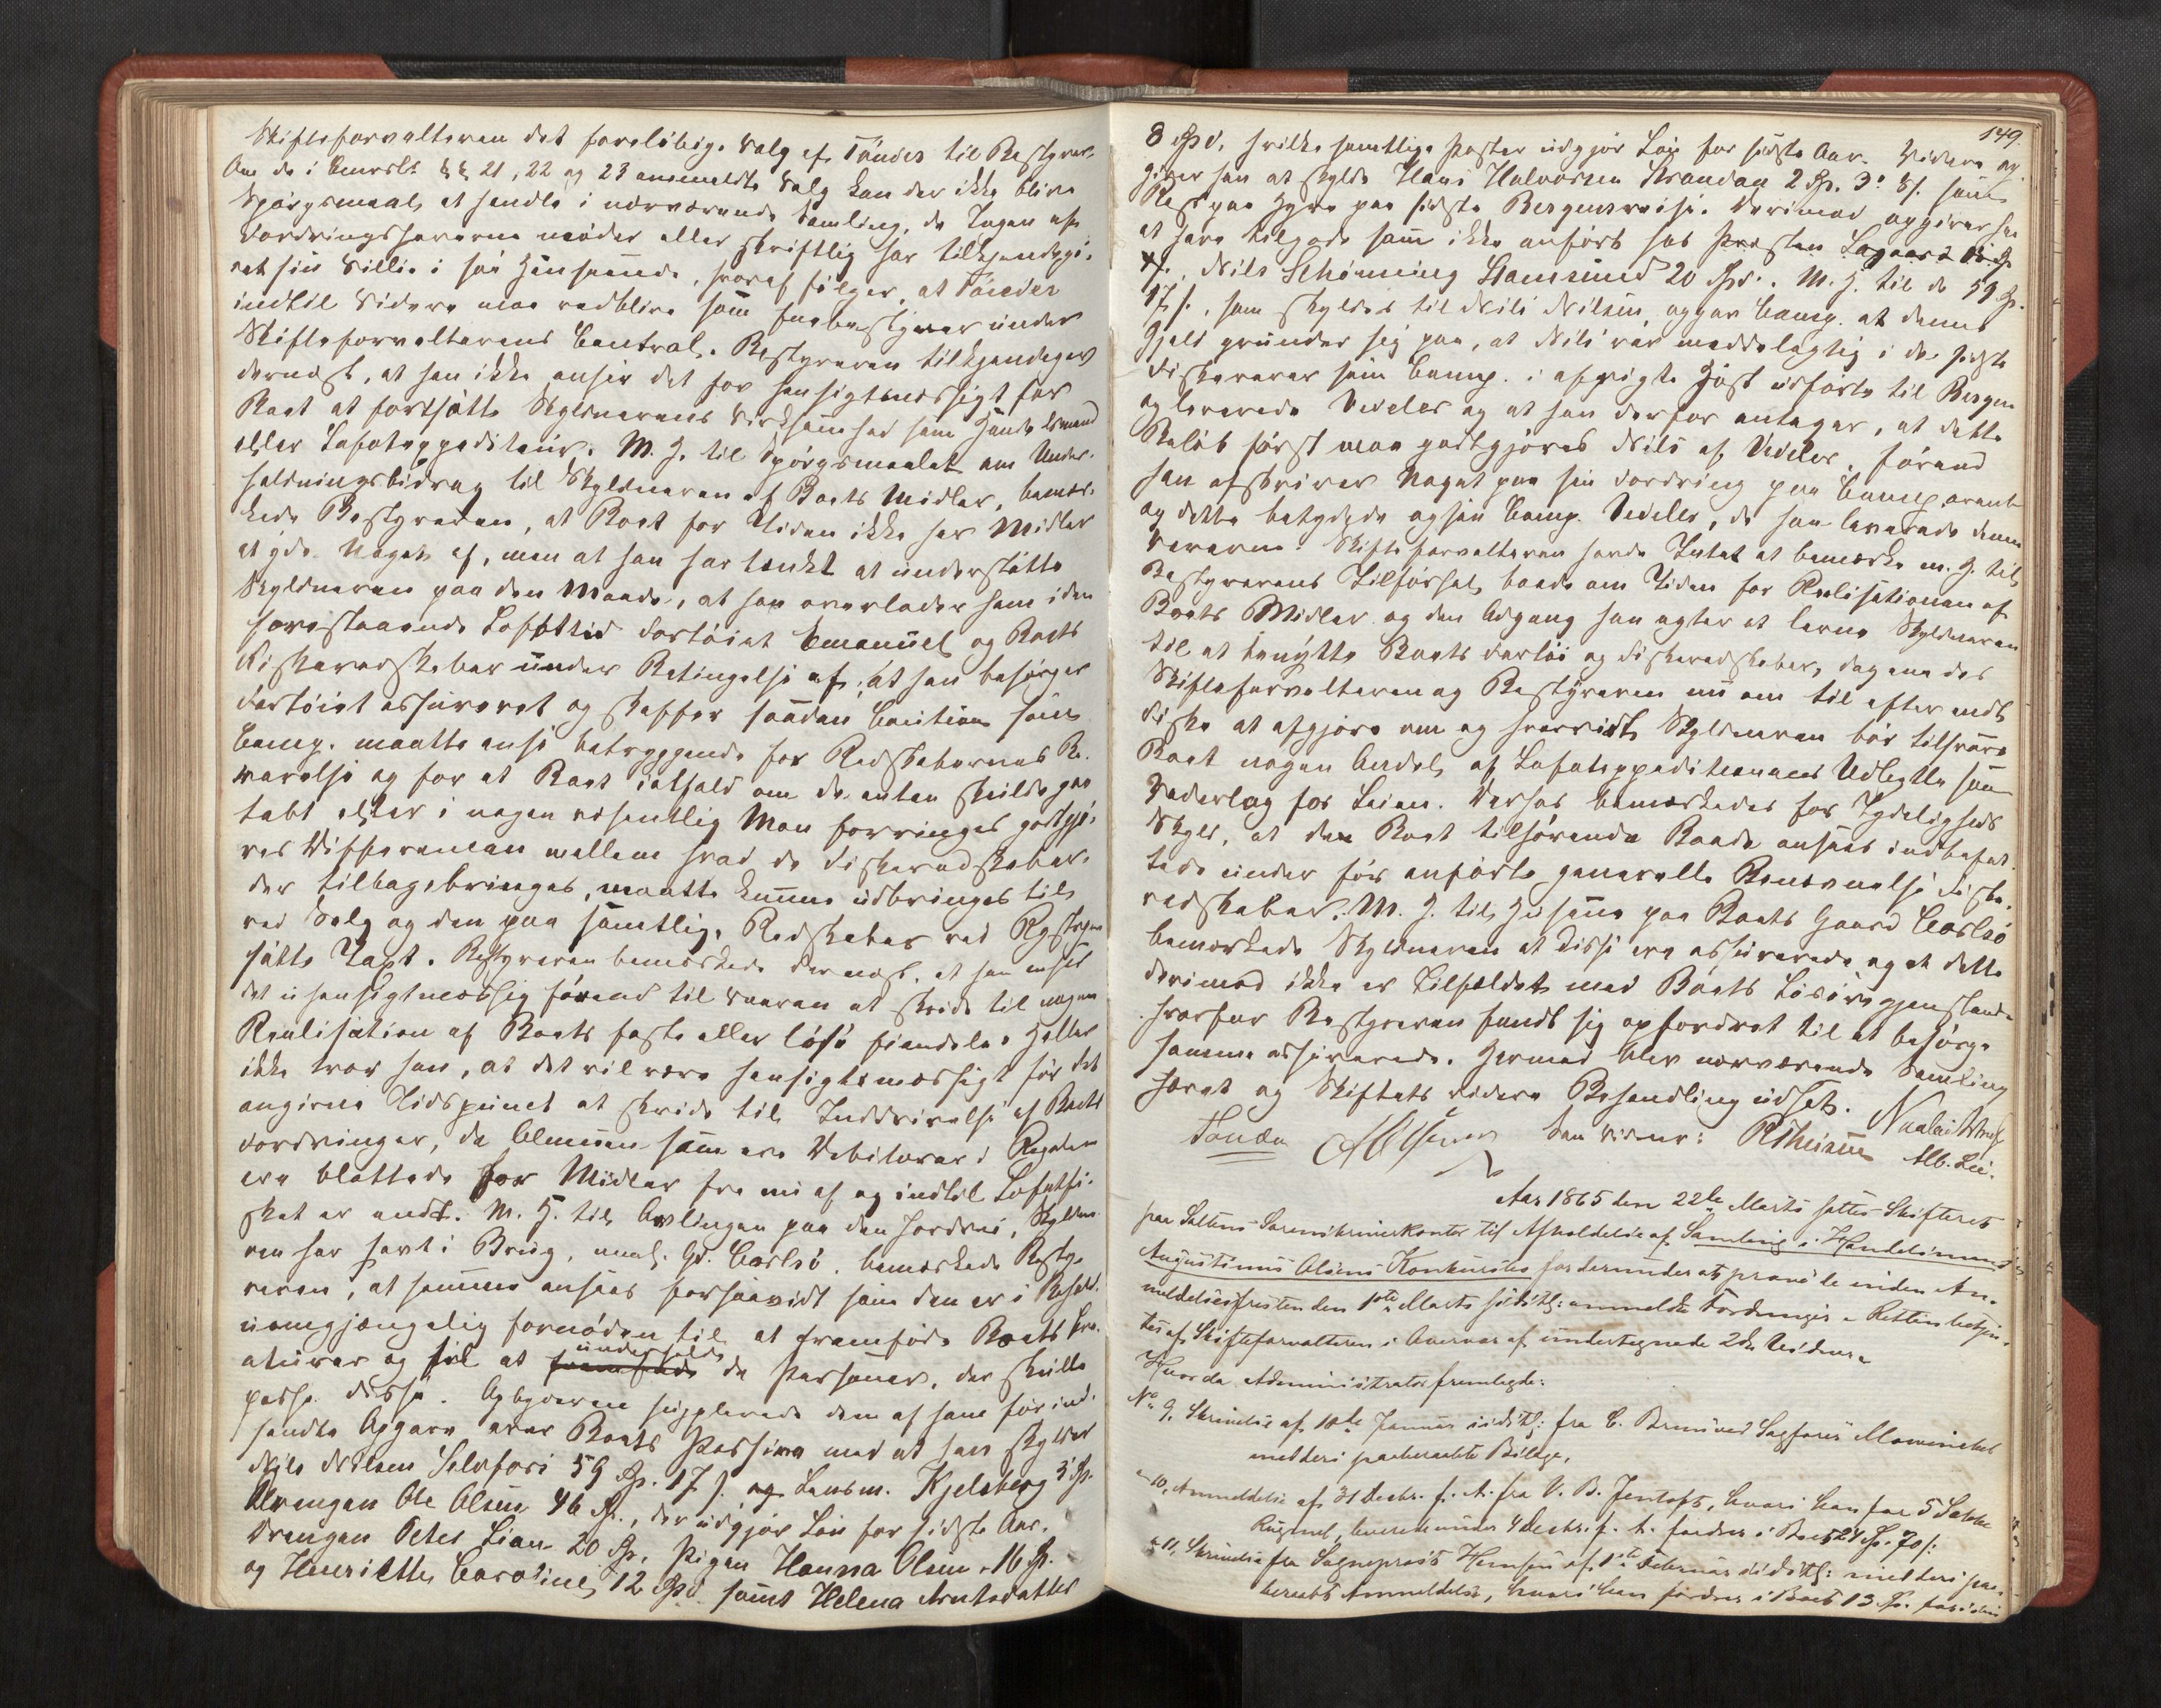 Skifteforvalteren det foreløbige Valg af Tønder til Bestyrer.
Om de i Concurslv. §§ 21, 22 og 23 ommeldte Valg kan der ikke blive
Spørgsmaal at handle i nærværende Samling, da Ingen af
Fordringshaverne møder eller skriftlig har tilkjendegi-
vet sin Villie i saa Henseende, hvoraf følger, at Tønder
indtil Videre maa vedblive som Enebestyrer under
Skifteforvalterens Control. Bestyreren tilkjendegav
dernæst, at han ikke anser det for hensigtsmæssigt for
Boet at fortsætte Skyldnerens Virksomhed som Handelsmand
eller Lofotexpediteur. M. H. til Spørgsmaalet om Under-
holdningsbidrag til Skyldneren af Boets Midler, bemær-
kede Bestyreren, at Boet for Tiden ikke har Midler
at yde Noget af, men at han har tænkt at understøtte
Skyldneren paa den Maade, at han overlader ham i den
forestaaende Lofottid Fartøiet Emanuel og Boets
Fiskeredskaber under Betingelse af, at han besørger
Fartøiet assureret og skaffer saadan Caution som
Comp. maatte anse betryggende for Redskabernes Be-
varelse og for at Boet ialfald om de enten skulde gaa
tabt eller i nogen væsentlig Mon forringes godtgjø-
res Differencen mellem hvad de Fiskeredskaber,
der tilbagebringes, maatte kunne udbringes til
ved Salg og den paa samtlige Redskaber ved Registrer.
satte Taxt. Bestyreren bemærkede dernæst, at han anser
det uhensigtmæssig førend til Vaaren at skride til nogen
Realisation af Boets faste eller løse Eiendele. Heller
ikke tror han, at det vil være hensigtsmæssigt før det
angivne Tidspunct at skride til Inddrivelse af Boets
Fordringer, da Almuen som ere Debitorer i Regelen
ere blottede for Midler fra nu af og indtil Lofotfi-
sket er endt. M. H. til Avlingen paa den Jordvei, Skyldne-
ren har havt i Brug, neml. Gd. Carlsø, bemærkede Besty-
reren, at samme ansees forsaavidt som den er i Behold,
uomgjængelig fornøden til at fremføde Boets Kre-
aturer og til at fremføde underholde de Personer, der skulle
passe disse. Opbyderen supplerede den af ham før ind-
sendte Opgave over Boets Passiva med at han skylder
Nils Nilsen Selsfors 59 Sp. 17 s. og Lensm. Kjelsberg 3 Sp.
Drengen Ole Olsen 46 Sp., der udgjør Løn for sidste Aar,
Drengen Peter Lian 20 Sp., Pigen Hanna Olsen 16 Sp.
og Henriette Caroline 12 Spd. samt Helena Arntsdatter
149.
8 Spd, hvilke samtlige Poster udgjør Løn for sidste Aar. Videre op-
giver han at skylde Hans Halvorsen Strandaa 2 Sp. 3 ort 8 s. som
Rest paa Hyre paa sidste Bergensreise. Derimod opgiver han
at have tilgode som ikke anført hos Presten
Nils Schønning Stamsund 20 Spd. M. H. til de 59 Sp.
17 s., som skyldes til Nils Nilsen, opgav Comp. at denne
Gjeld grunder sig paa, at Nils var meddelagtig i de sidste
Fiskevarer som Comp. i afvigte Høst udførte til Bergen
og leverede Vedeler og at han derfor antager, at dette
Beløb først maa godtgjøres Nils af Vedeler, førend
han afskriver Noget paa sin Fordring paa Comp.
og dette betydede ogsaa Comp. Vedeler, da han leverede denne
Varerne. Skifteforvalteren havde Intet at bemærke m. H. til
Bestyrerens Tilførsel baade om Tiden for Realisationen af
Boets Midler og den Adgang han agter at levne Skyldneren
til at benytte Boets Fartøi og Fiskeredskaber, dog ene des
Skifteforvalteren og Bestyreren nu om til efter endt
Fiske at afgjøre om og hvorvidt Skyldneren bør tilsvare
Boet nogen Andel af Lofotexpeditionens Udbytte som
Vederlag for Leien. Derhos bemærkedes for Tydeligheds
Skyld, at den Boet tilhørende Baade ansees indbefat-
tede under før anførte generelle Benævnelse Fiske-
redskaber. M. H. til Husene paa Boets Gaard Carlsø
bemærkede Skyldneren at disse ere assurerede og at dette
derimod ikke er Tilfældet med Boets Løsøregjenstande
hvorfor Bestyreren fandt sig opfordret til at besørge
samme assurerede. Hermed blev nærværende Samling
hævet og Skiftets videre Behandling udsat.
Tønder A Olsen Som Vidner: P Theisen
Alb. Lie.
Aar 1865 den 22de Marts sattes Skifteret
paa Saltens Sorenskriverkontor til Afholdelse af Samling i Handelsmand
Augustinus Olsens Konkursbo for derunder at prøve de inden An-
meldelsesfristen den 1ste Marts sidstl: anmeldte Fordringer. Retten betjen-
tes af Skifteforvalteren i Overvær af undertegnede 2de Vidner.
Hvorda Administrator fremlagde:
No 9, Skrivelse af 10de Januar sidstl: fra C. Brun ved Sagfører Mowinckel
med deri paaberaabte Bilage,
" 10, Anmeldelse af 31 Decbr. f. A. fra V. B. Jentoft, hvori han for 5 Sække
Rugmel, leverede under 4 Decbr. f. A. fordrer i Boet 21 Sp. 70 s:
" 11, Skrivelse fra Sogneprest Hansen af 1ste Februar sidstl: med deri paa-
beraabt Anmeldelse, hvori han fordrer i Boet 13 Sp. for